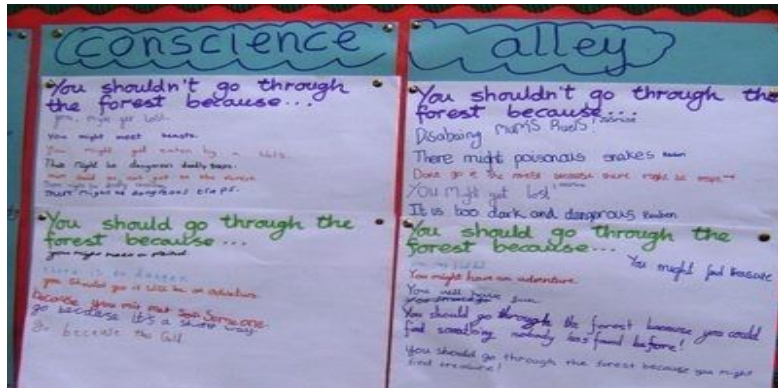 conscience alley
You shouldn't go through
the forest because...
you might get lost.
You might meet beasts.
You might get eaten by a
There might be dangerous deadly
There might be dangerous traps.
You should go through the
forest because...
you might meet a friend.
there is no danger
you should go it will be an adventure
because you mit met Someone
go because it's a shorter way
go because the
You shouldn't go through the
forest because...
Disobaying mum's Ruels!
There might poisonous snakes Reuben
Dont go in the forest because there might be
You might get lost!
It is too dark and dangerous Reuben
You should go through the
forest because...
You might find treasure
You might have an adventure.
You will have fun
You should go through the forest because you could
find something nobody has found before!
You should go through the forest because you might
find treasure!